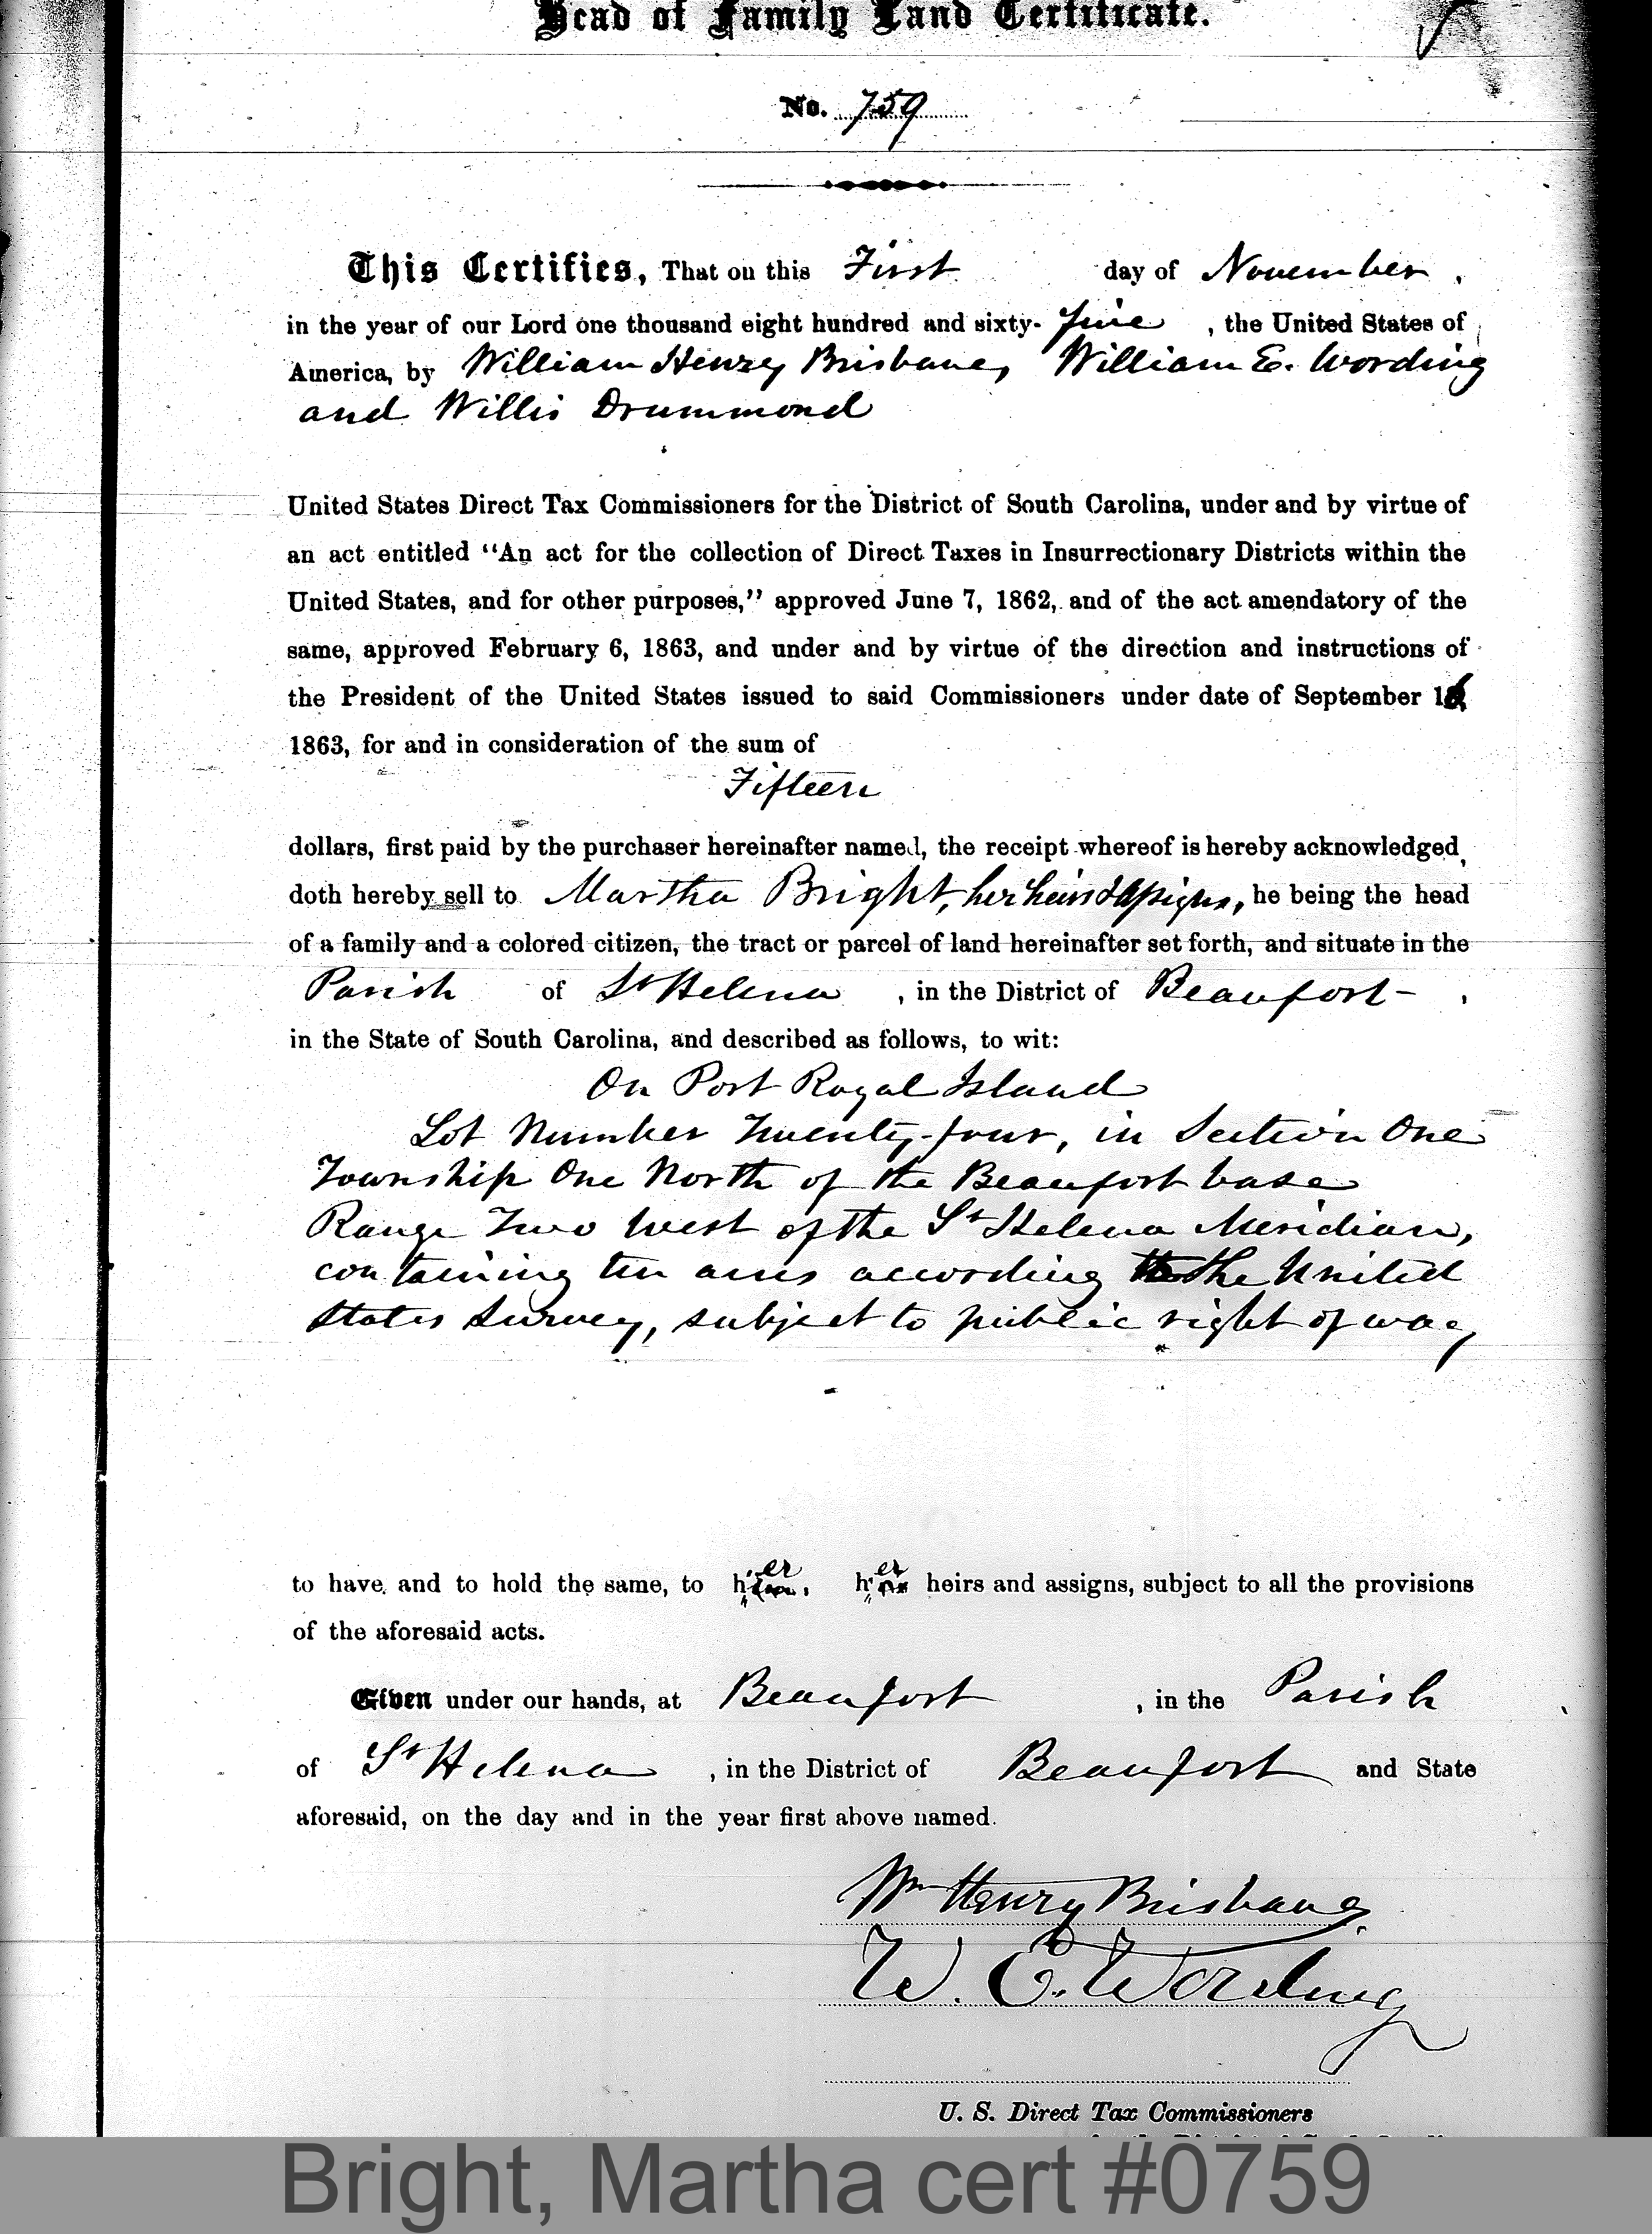 Head of Family Land Certificate.
No. 759
This Certifies, That on this First day of November,
in the year of our Lord one thousand eight hundred and sixty-five, the United States of
America, by William Henry Brisbane, William E. Wording
and Willis Drummond
United States Direct Tax Commissioners for the District of South Carolina, under and by virtue of
an act entitled "An act for the collection of Direct Taxes in Insurrectionary Districts within the
United States, and for other purposes," approved June 7, 1862, and of the act amendatory of the
same, approved February 6, 1863, and under and by virtue of the direction and instructions of
the President of the United States issued to said Commissioners under date of September 16
1863, for and in consideration of the sum of
Fifteen
dollars, first paid by the purchaser hereinafter named, the receipt whereof is hereby acknowledged,
doth hereby sell to Martha Bright, her heirs & assigns, he being the head
of a family and a colored citizen, the tract or parcel of land hereinafter set forth, and situate in the
Parish of St Helena, in the District of Beaufort,
in the State of South Carolina, and described as follows, to wit:
On Port Royal Island
Lot Number Twenty-four, in Section One
Township One North of the Beaufort base
Range Two West of the St Helena Meridian,
containing ten acres according to the United
States Survey, subject to public right of way
to have and to hold the same, to her, her heirs and assigns, subject to all the provisions
of the aforesaid acts.
Given under our hands, at Beaufort, in the Parish
of St Helena, in the District of Beaufort and State
aforesaid, on the day and in the year first above named.
Wm Henry Brisbane
W. E. Wording
U. S. Direct Tax Commissioners
Bright, Martha cert #0759